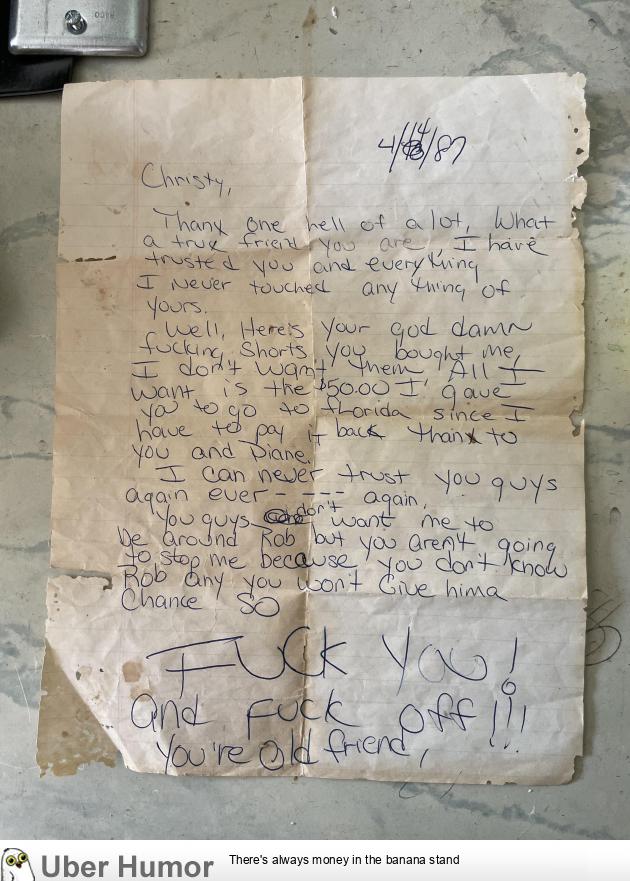 4/14/87
Christy,
Thanx one hell of a lot, What
a true friend you are, I have
trusted you and everything
I never touched any thing of
yours.
Well, Here's your god damn
fucking shorts you bought me,
I don't want them All I
want is the $50.00 I gave
you to go to Florida since I
have to pay it back thanx to
you and Diane.
I can never trust you guys
again ever - - - - again.
You guys don't want me to
be around Rob but you aren't going
to stop me because you don't know
Rob any you won't Give him a
Chance SO
FUCK YOU!
And FUCK off!!!
You're Old friend,
Uber Humor
There's always money in the banana stand